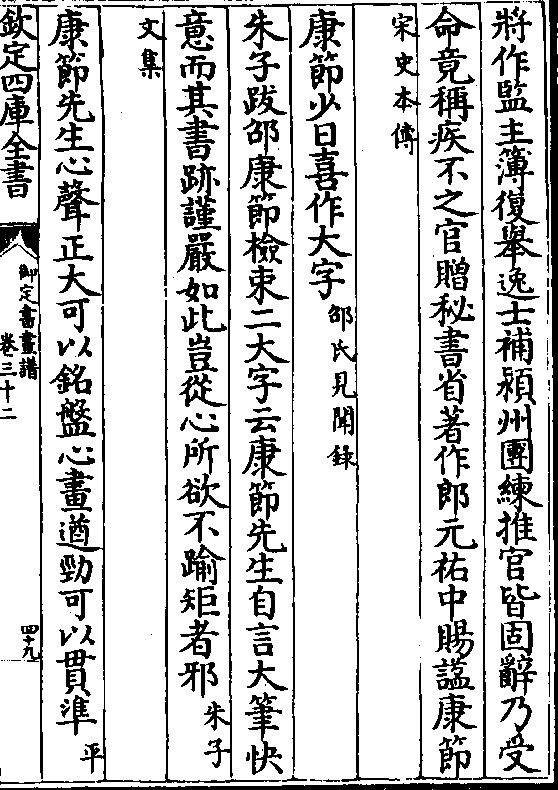 將作監主簿復舉逸士補潁州團練推官皆固辭乃受
命竟稱疾不之官贈秘書省著作郎元祐中賜諡康節
宋史本傳
康節少日喜作大字邵氏見聞錄
朱子跋邵康節檢束二大字云康節先生自言大筆快
意而其書跡謹嚴如此豈從心所欲不踰矩者邪朱子
文集
康節先生心聲正大可以銘盤心畫遒勁可以貫準平
欽定四庫全書
御定書畫譜
卷三十二
四十九